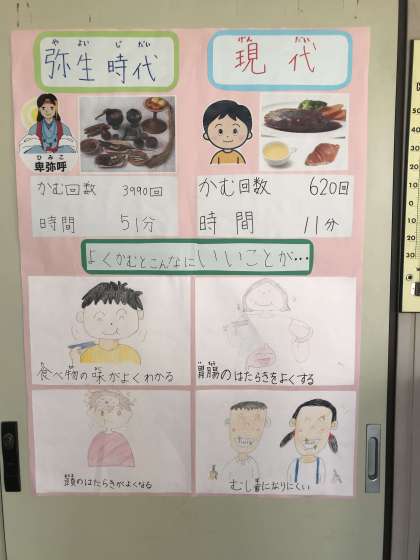 やよいじだい
弥生時代
げんだい
現代
ひみこ
卑弥呼
かむ回数 3990回
時間 51分
かむ回数 620回
時間 11分
よくかむとこんなにいいことが…
食べ物の味がよくわかる
胃腸のはたらきをよくする
頭のはたらきがよくなる
むし歯になりにくい
30
20
10
0
10
20
30